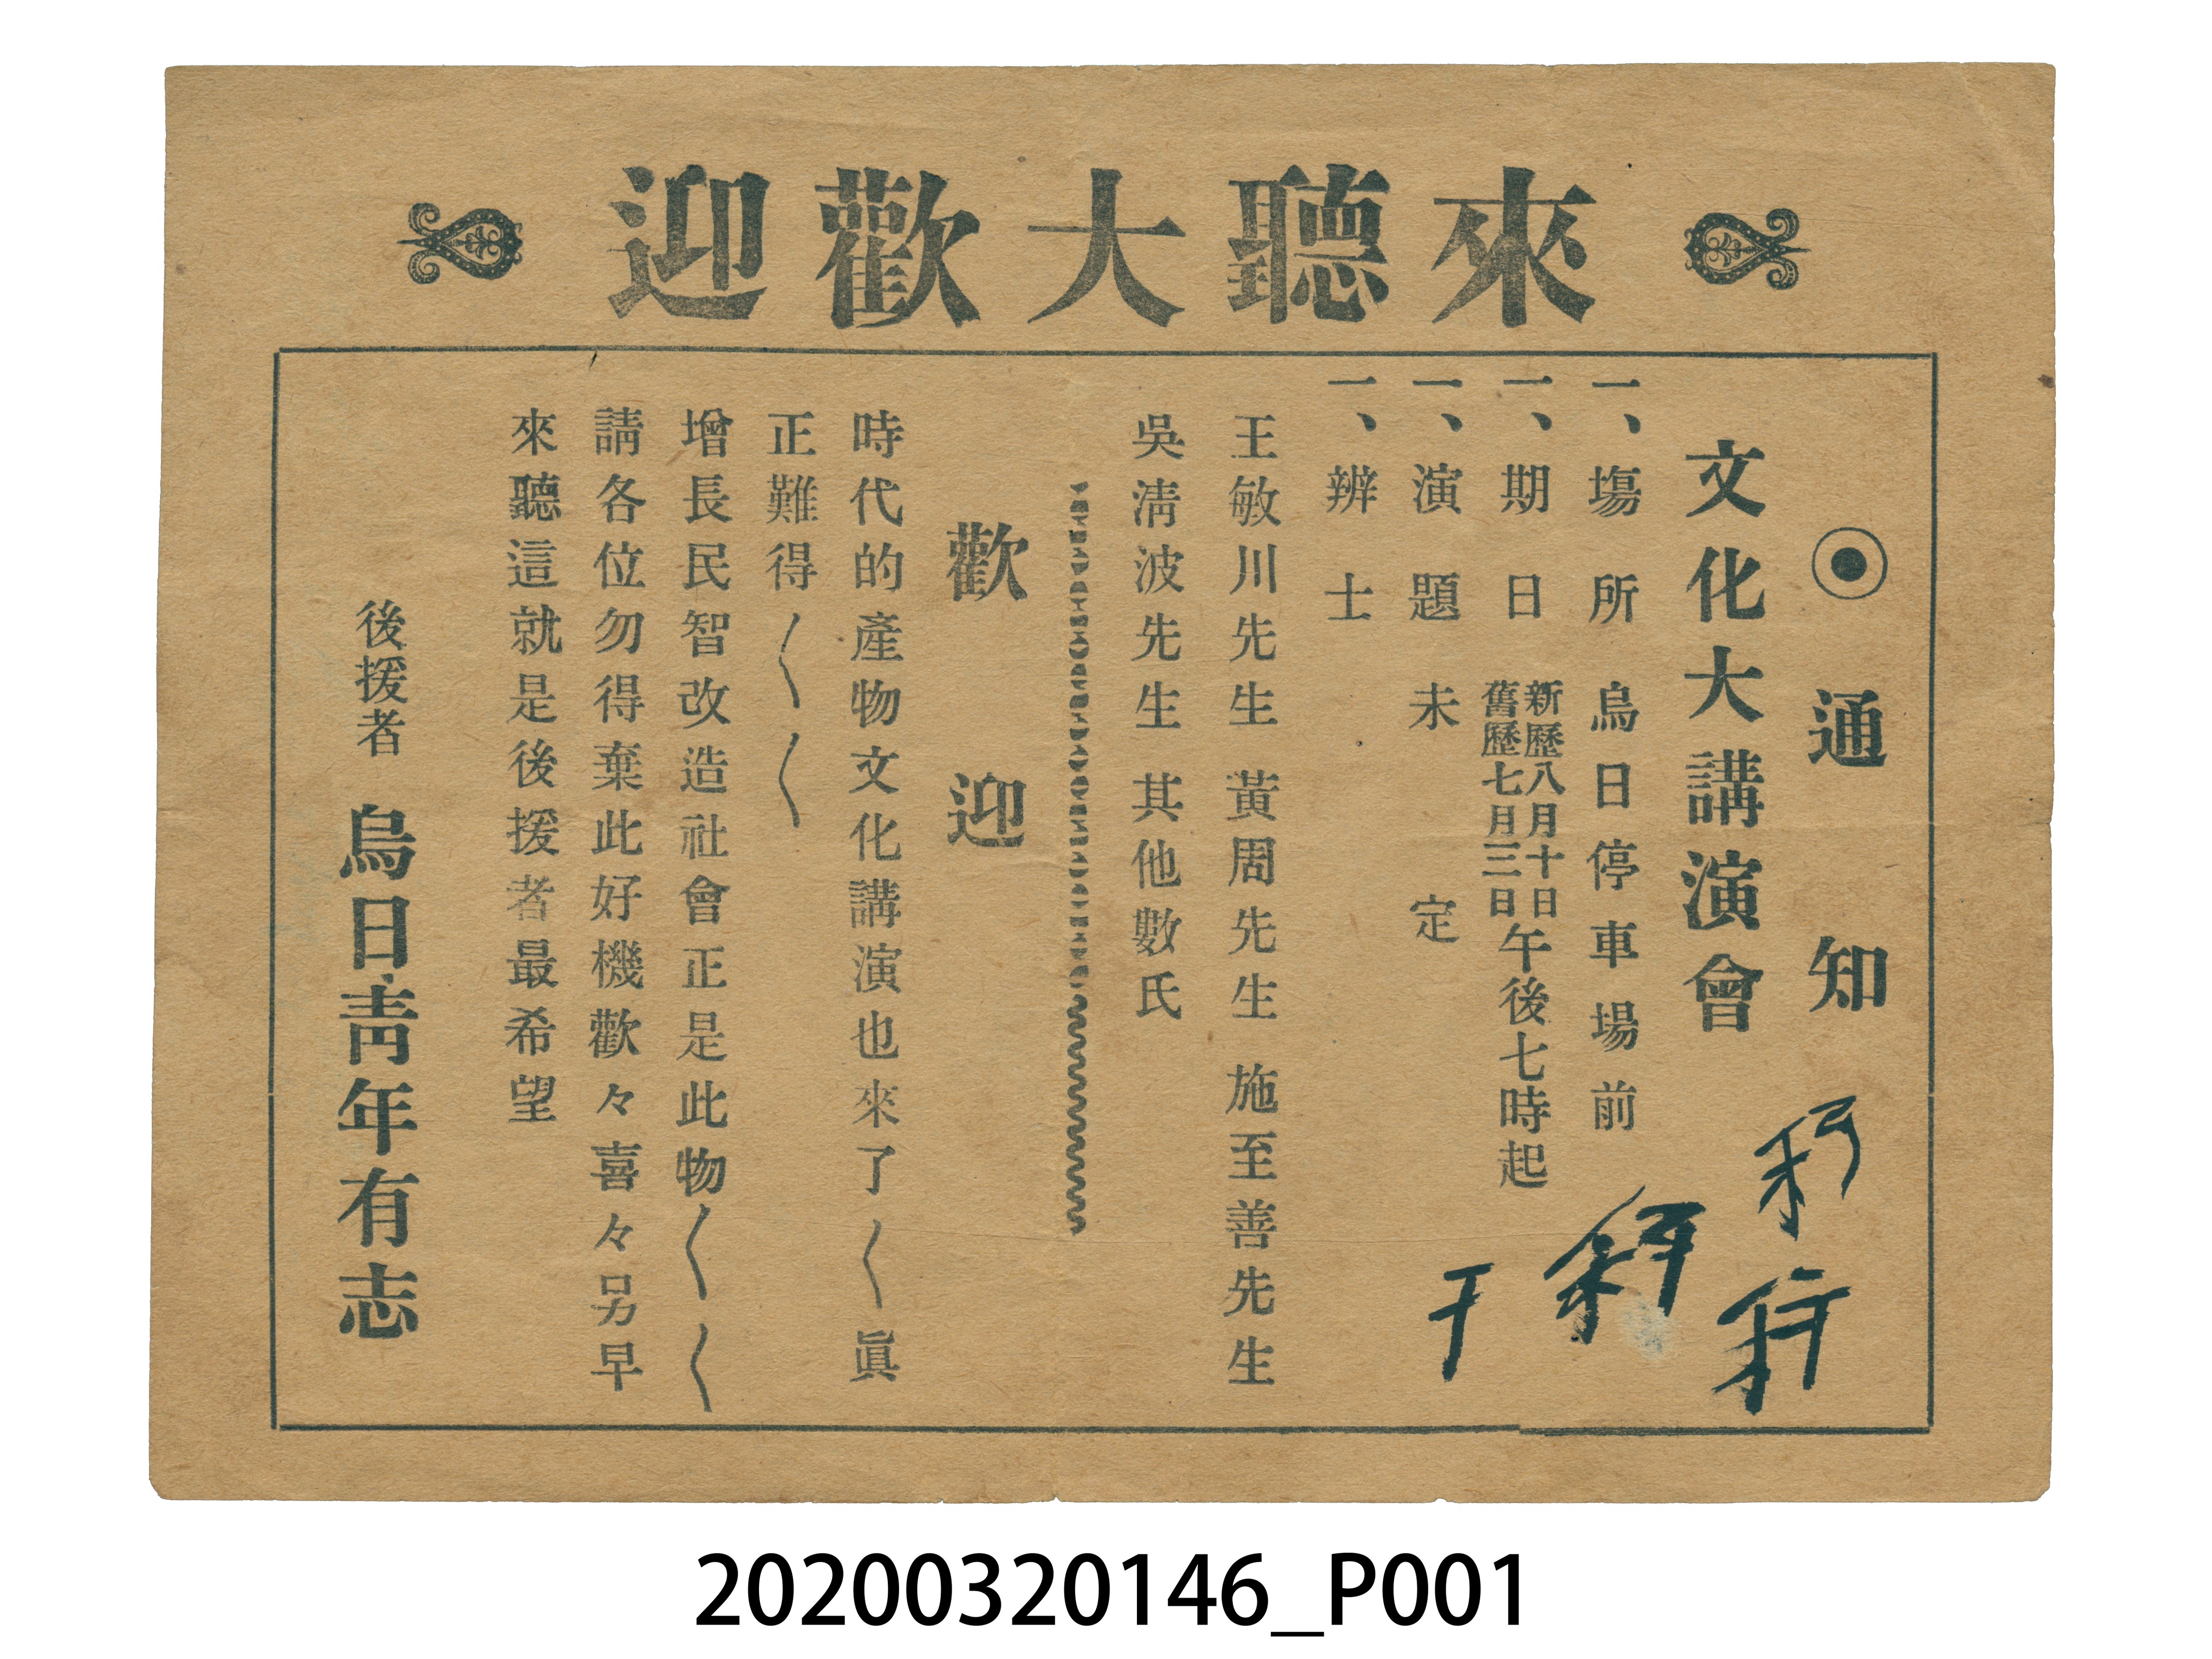 來聽大歡迎
◉通知
文化大講演會
一、塲所 烏日停車場前
一、期日 新歷八月十日 舊歷七月三日 午後七時起
一、演題 未定
一、辨士
王敏川先生 黃周先生 施至善先生
吳淸波先生 其他數氏
歡迎
時代的產物文化講演也來了〱眞
正難得〱〱
增長民智改造社會正是此物〱〱
請各位勿得棄此好機歡々喜々另早
來聽這就是後援者最希望
後援者 烏日靑年有志
20200320146_P001